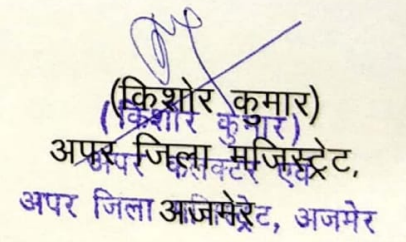 (किशोर कुमार)
(किशोर कुमार)
अपर जिला मजिस्ट्रेट,
अपर कलक्टर एवं
अजमेर
अपर जिला मजिस्ट्रेट, अजमेर